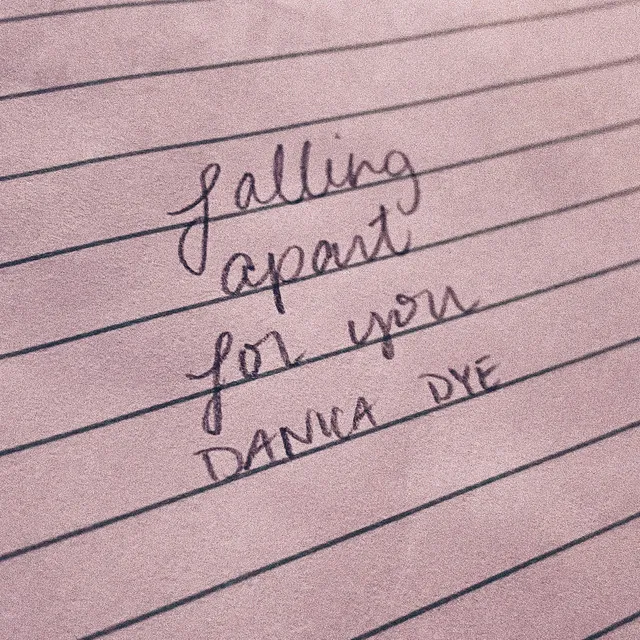 falling
apart
for you
DANKA DYE